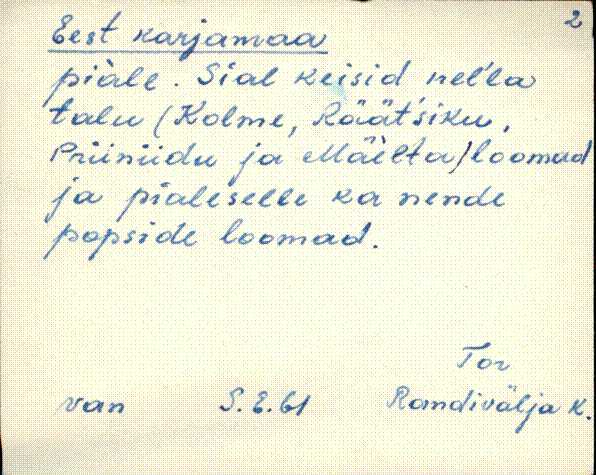 2
Eest karjamaa
piàle. Sial keisid nel'la
talu (Kolme, Räät'siku,
Priiniidu ja Mäèlta) loomad
ja pialeselle ka nende
popside loomad.
Tor
van S.E.61 Randivälja K.